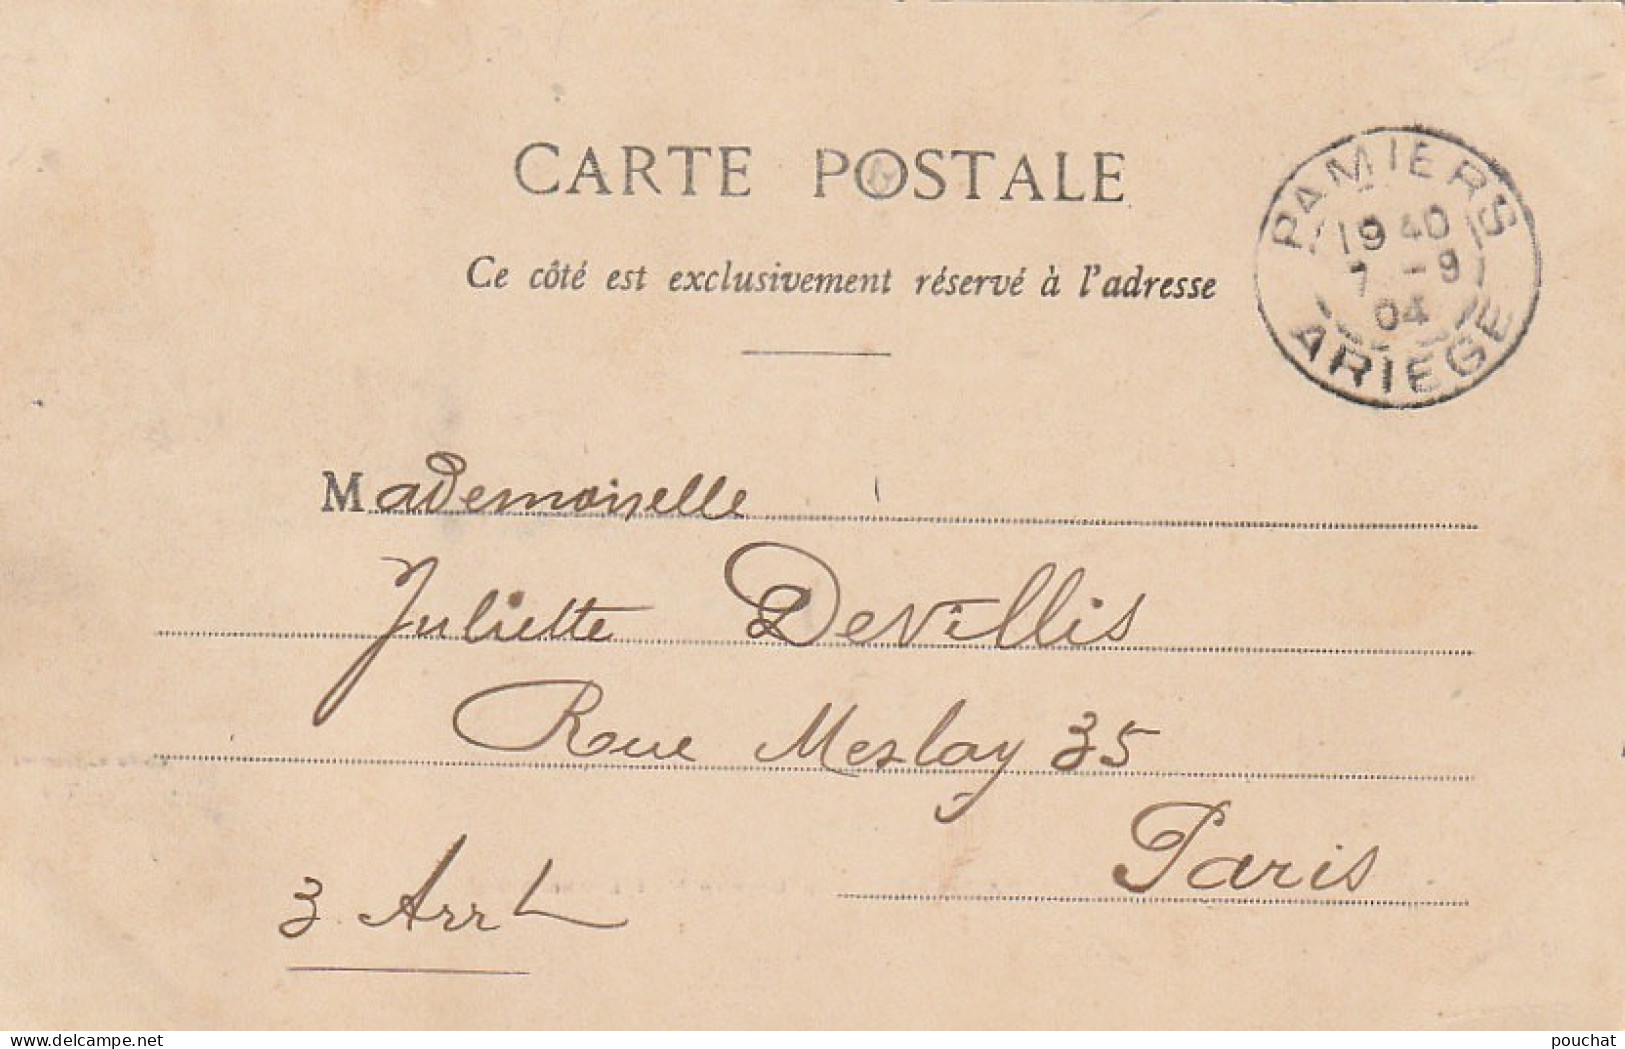 CARTE POSTALE
Ce côté est exclusivement réservé à l'adresse
PAMIERS
19 40
7 -9
04
ARIEGE
Mademoiselle
Juliette Devillis
Rue Meslay 35
Paris
3 Arrt
delcampe.net
pouchat